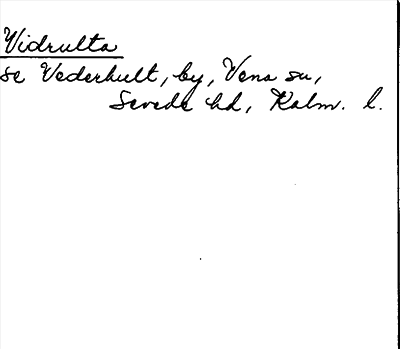 Vidrulta
se Vederhult, by, Vena su,
Sevede hd, Kalm. l.